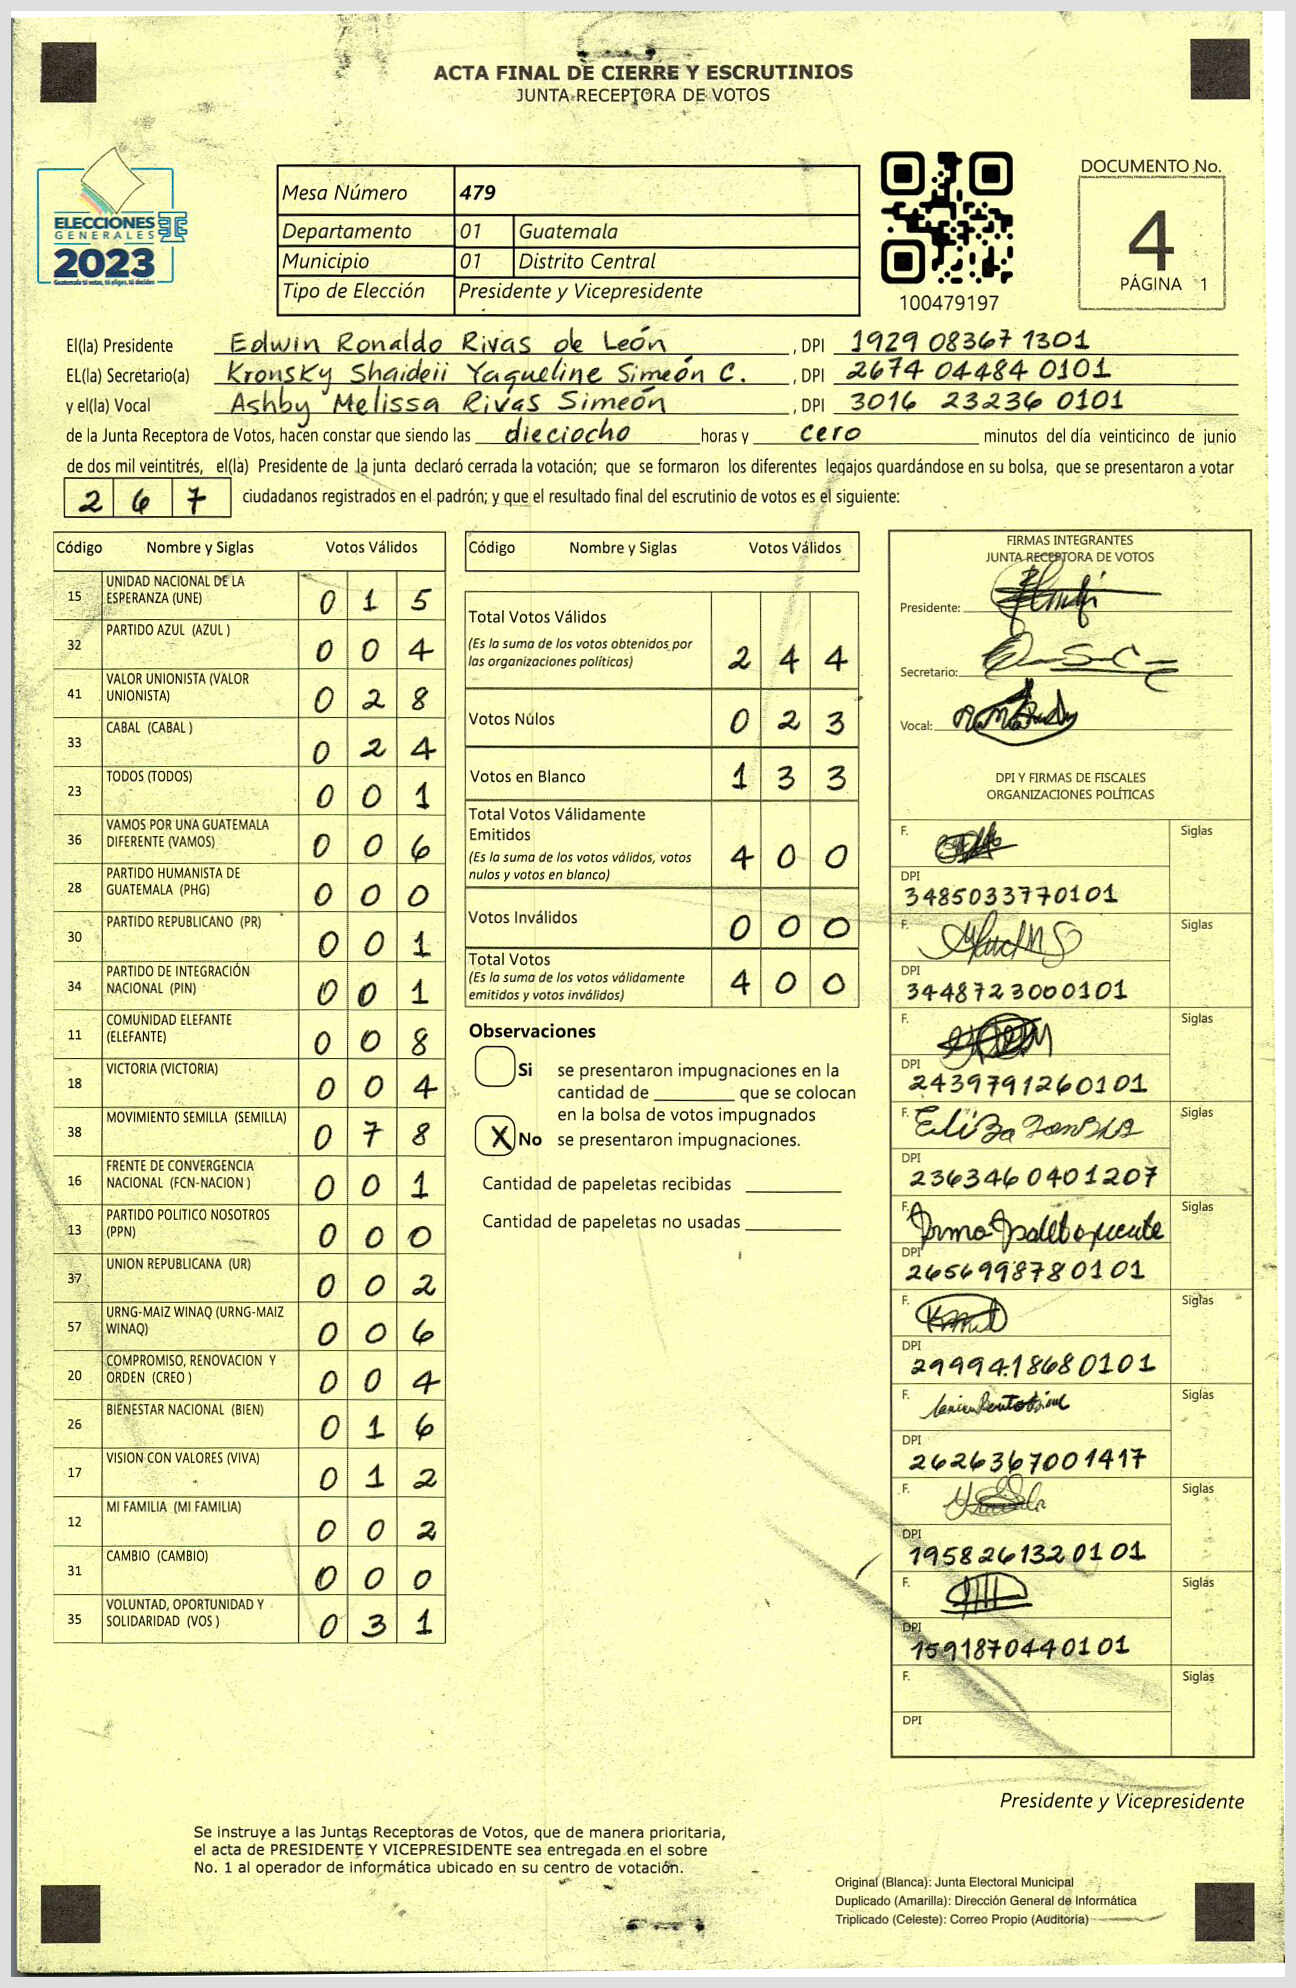 ACTA FINAL DE CIERRE Y ESCRUTINIOS
JUNTA RECEPTORA DE VOTOS
ELECCIONES
GENERALES
2023
Guatemala tú votas, tú eliges, tú decides
Mesa Número 479
Departamento 01 Guatemala
Municipio 01 Distrito Central
Tipo de Elección Presidente y Vicepresidente
100479197
DOCUMENTO No.
4
PÁGINA 1
El(la) Presidente Edwin Ronaldo Rivas de León, DPI 1929 08367 1301
EL(la) Secretario(a) Kronsky Shaideii Yaqueline Simeón C. , DPI 2674 04484 0101
y el(la) Vocal Ashby Melissa Rivas Simeón , DPI 3016 23236 0101
de la Junta Receptora de Votos, hacen constar que siendo las dieciocho horas y cero minutos del día veinticinco de junio
de dos mil veintitrés, el(la) Presidente de la junta declaró cerrada la votación; que se formaron los diferentes legajos guardándose en su bolsa, que se presentaron a votar
267 ciudadanos registrados en el padrón; y que el resultado final del escrutinio de votos es el siguiente:
Código Nombre y Siglas Votos Válidos
15 UNIDAD NACIONAL DE LA ESPERANZA (UNE) 0 1 5
32 PARTIDO AZUL (AZUL ) 0 0 4
41 VALOR UNIONISTA (VALOR UNIONISTA) 0 2 8
33 CABAL (CABAL ) 0 2 4
23 TODOS (TODOS) 0 0 1
36 VAMOS POR UNA GUATEMALA DIFERENTE (VAMOS) 0 0 6
28 PARTIDO HUMANISTA DE GUATEMALA (PHG) 0 0 0
30 PARTIDO REPUBLICANO (PR) 0 0 1
34 PARTIDO DE INTEGRACIÓN NACIONAL (PIN) 0 0 1
11 COMUNIDAD ELEFANTE (ELEFANTE) 0 0 8
18 VICTORIA (VICTORIA) 0 0 4
38 MOVIMIENTO SEMILLA (SEMILLA) 0 7 8
16 FRENTE DE CONVERGENCIA NACIONAL (FCN-NACION ) 0 0 1
13 PARTIDO POLITICO NOSOTROS (PPN) 0 0 0
37 UNION REPUBLICANA (UR) 0 0 2
57 URNG-MAIZ WINAQ (URNG-MAIZ WINAQ) 0 0 6
20 COMPROMISO, RENOVACION Y ORDEN (CREO ) 0 0 4
26 BIENESTAR NACIONAL (BIEN) 0 1 6
17 VISION CON VALORES (VIVA) 0 1 2
12 MI FAMILIA (MI FAMILIA) 0 0 2
31 CAMBIO (CAMBIO) 0 0 0
35 VOLUNTAD, OPORTUNIDAD Y SOLIDARIDAD (VOS ) 0 3 1
Código Nombre y Siglas Votos Válidos
Total Votos Válidos
(Es la suma de los votos obtenidos por
las organizaciones políticas) 2 4 4
Votos Nulos 0 2 3
Votos en Blanco 1 3 3
Total Votos Válidamente
Emitidos
(Es la suma de los votos válidos, votos
nulos y votos en blanco) 4 0 0
Votos Inválidos 0 0 0
Total Votos
(Es la suma de los votos válidamente
emitidos y votos inválidos) 4 0 0
Observaciones
Si se presentaron impugnaciones en la
cantidad de ________ que se colocan
en la bolsa de votos impugnados
X No se presentaron impugnaciones.
Cantidad de papeletas recibidas
Cantidad de papeletas no usadas
FIRMAS INTEGRANTES
JUNTA RECEPTORA DE VOTOS
Presidente:
Secretario:
Vocal:
DPI Y FIRMAS DE FISCALES
ORGANIZACIONES POLÍTICAS
F. Siglas
DPI
3485033770101
F. Siglas
DPI
3448723000101
F. Siglas
DPI
2439791260101
F. Siglas
DPI
2363460401207
F. Siglas
DPI
2656998780101
F. Siglas
DPI
2999418680101
F. Siglas
DPI
2626367001417
F. Siglas
DPI
1958261320101
F. Siglas
DPI
1591870440101
F. Siglas
DPI
Presidente y Vicepresidente
Se instruye a las Juntas Receptoras de Votos, que de manera prioritaria,
el acta de PRESIDENTE Y VICEPRESIDENTE sea entregada en el sobre
No. 1 al operador de informática ubicado en su centro de votación.
Original (Blanca): Junta Electoral Municipal
Duplicado (Amarilla): Dirección General de Informática
Triplicado (Celeste): Correo Propio (Auditoría)